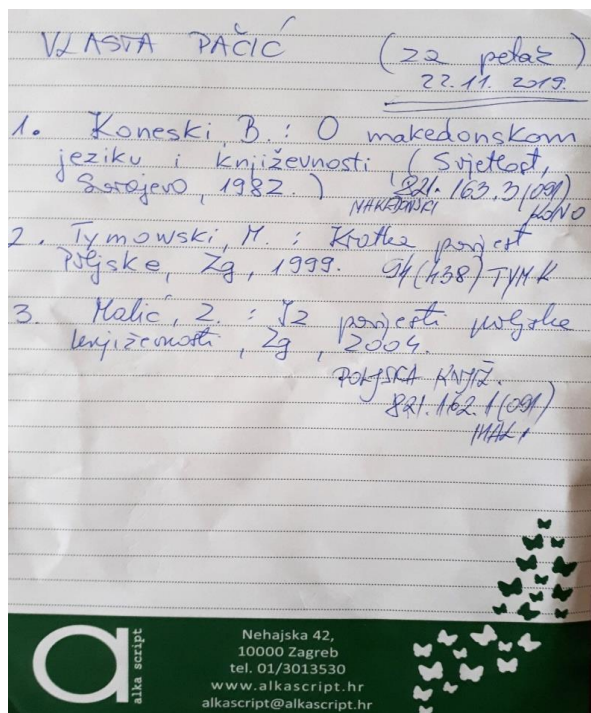 VLASTA PAČIĆ
(za petak)
22.11.2019.
1. Koneski, B.: O makedonskom
jeziku i književnosti, (Svjetlost,
Sarajevo, 1982.) 821.163.3(091)
MAKEDONSKI KONO
2. Tymowski, M.: Kratka povijest
Poljske, Zg, 1999. 94(438) TYM K
3. Malić, Z.: Iz povijesti poljske
književnosti, Zg, 2004.
POLJSKA KNJIŽ.
821.162.1(091)
MAL I
alka script
Nehajska 42,
10000 Zagreb
tel. 01/3013530
www.alkascript.hr
alkascript@alkascript.hr